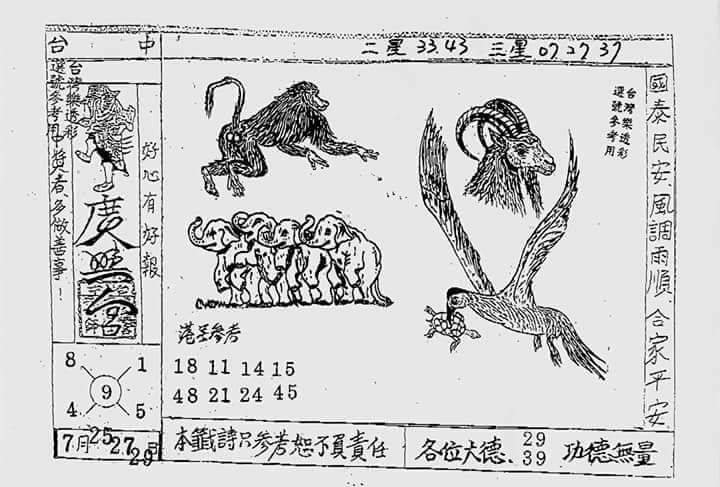 台 中
二星 33.43 三星 07 27 37
台灣樂透彩
選號參考用
中獎者、多做善事！
好心有好報
台灣樂透彩
選號參考用
國泰民安、風調雨順、合家平安
港至參考
18 11 14 15
48 21 24 45
8 1
9
4 5
7月 25 27 29日
本籤詩只參考恕不負責任
各位大德、29 39 功德無量